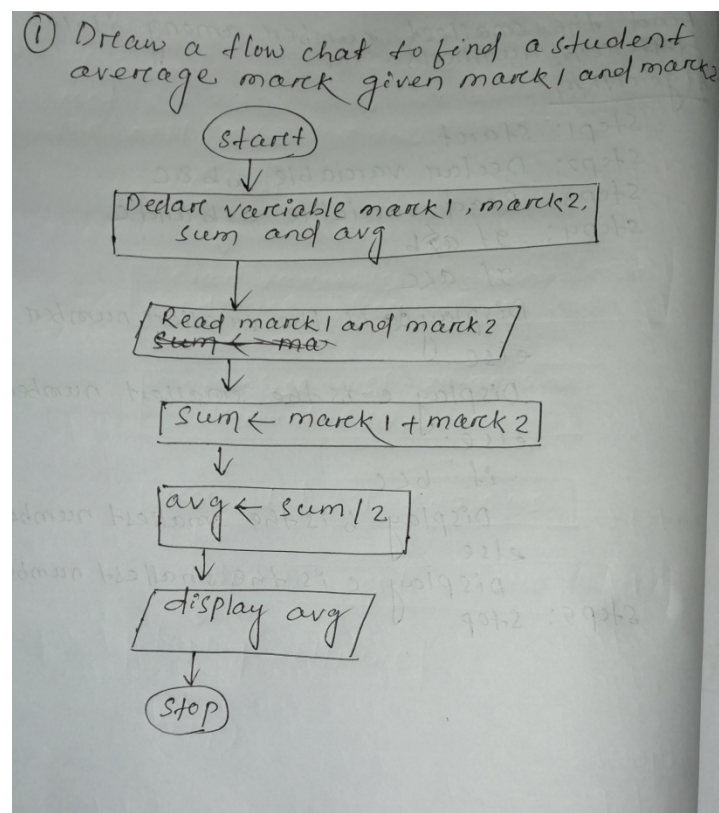 ① Draw a flow chat to find a student
average mark given mark1 and mark2
Start
Declare variable mark1, mark2,
sum and avg
Read mark1 and mark2
sum ← ma
sum ← mark1 + mark2
avg ← sum/2
display avg
Stop